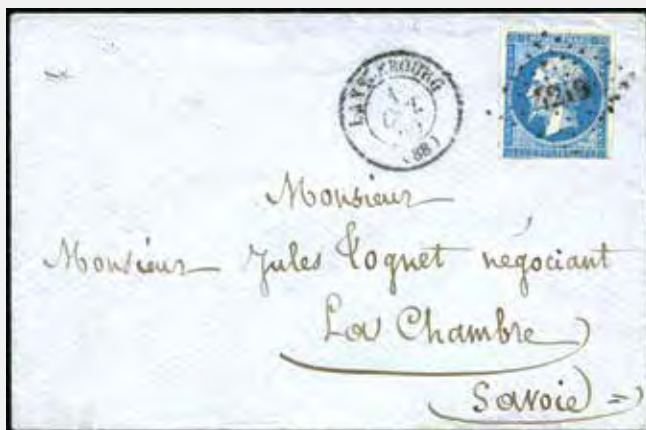 LANSLEBOURG
(88)
Monsieur
Monsieur Jules négociant
La Chambre
Savoie =